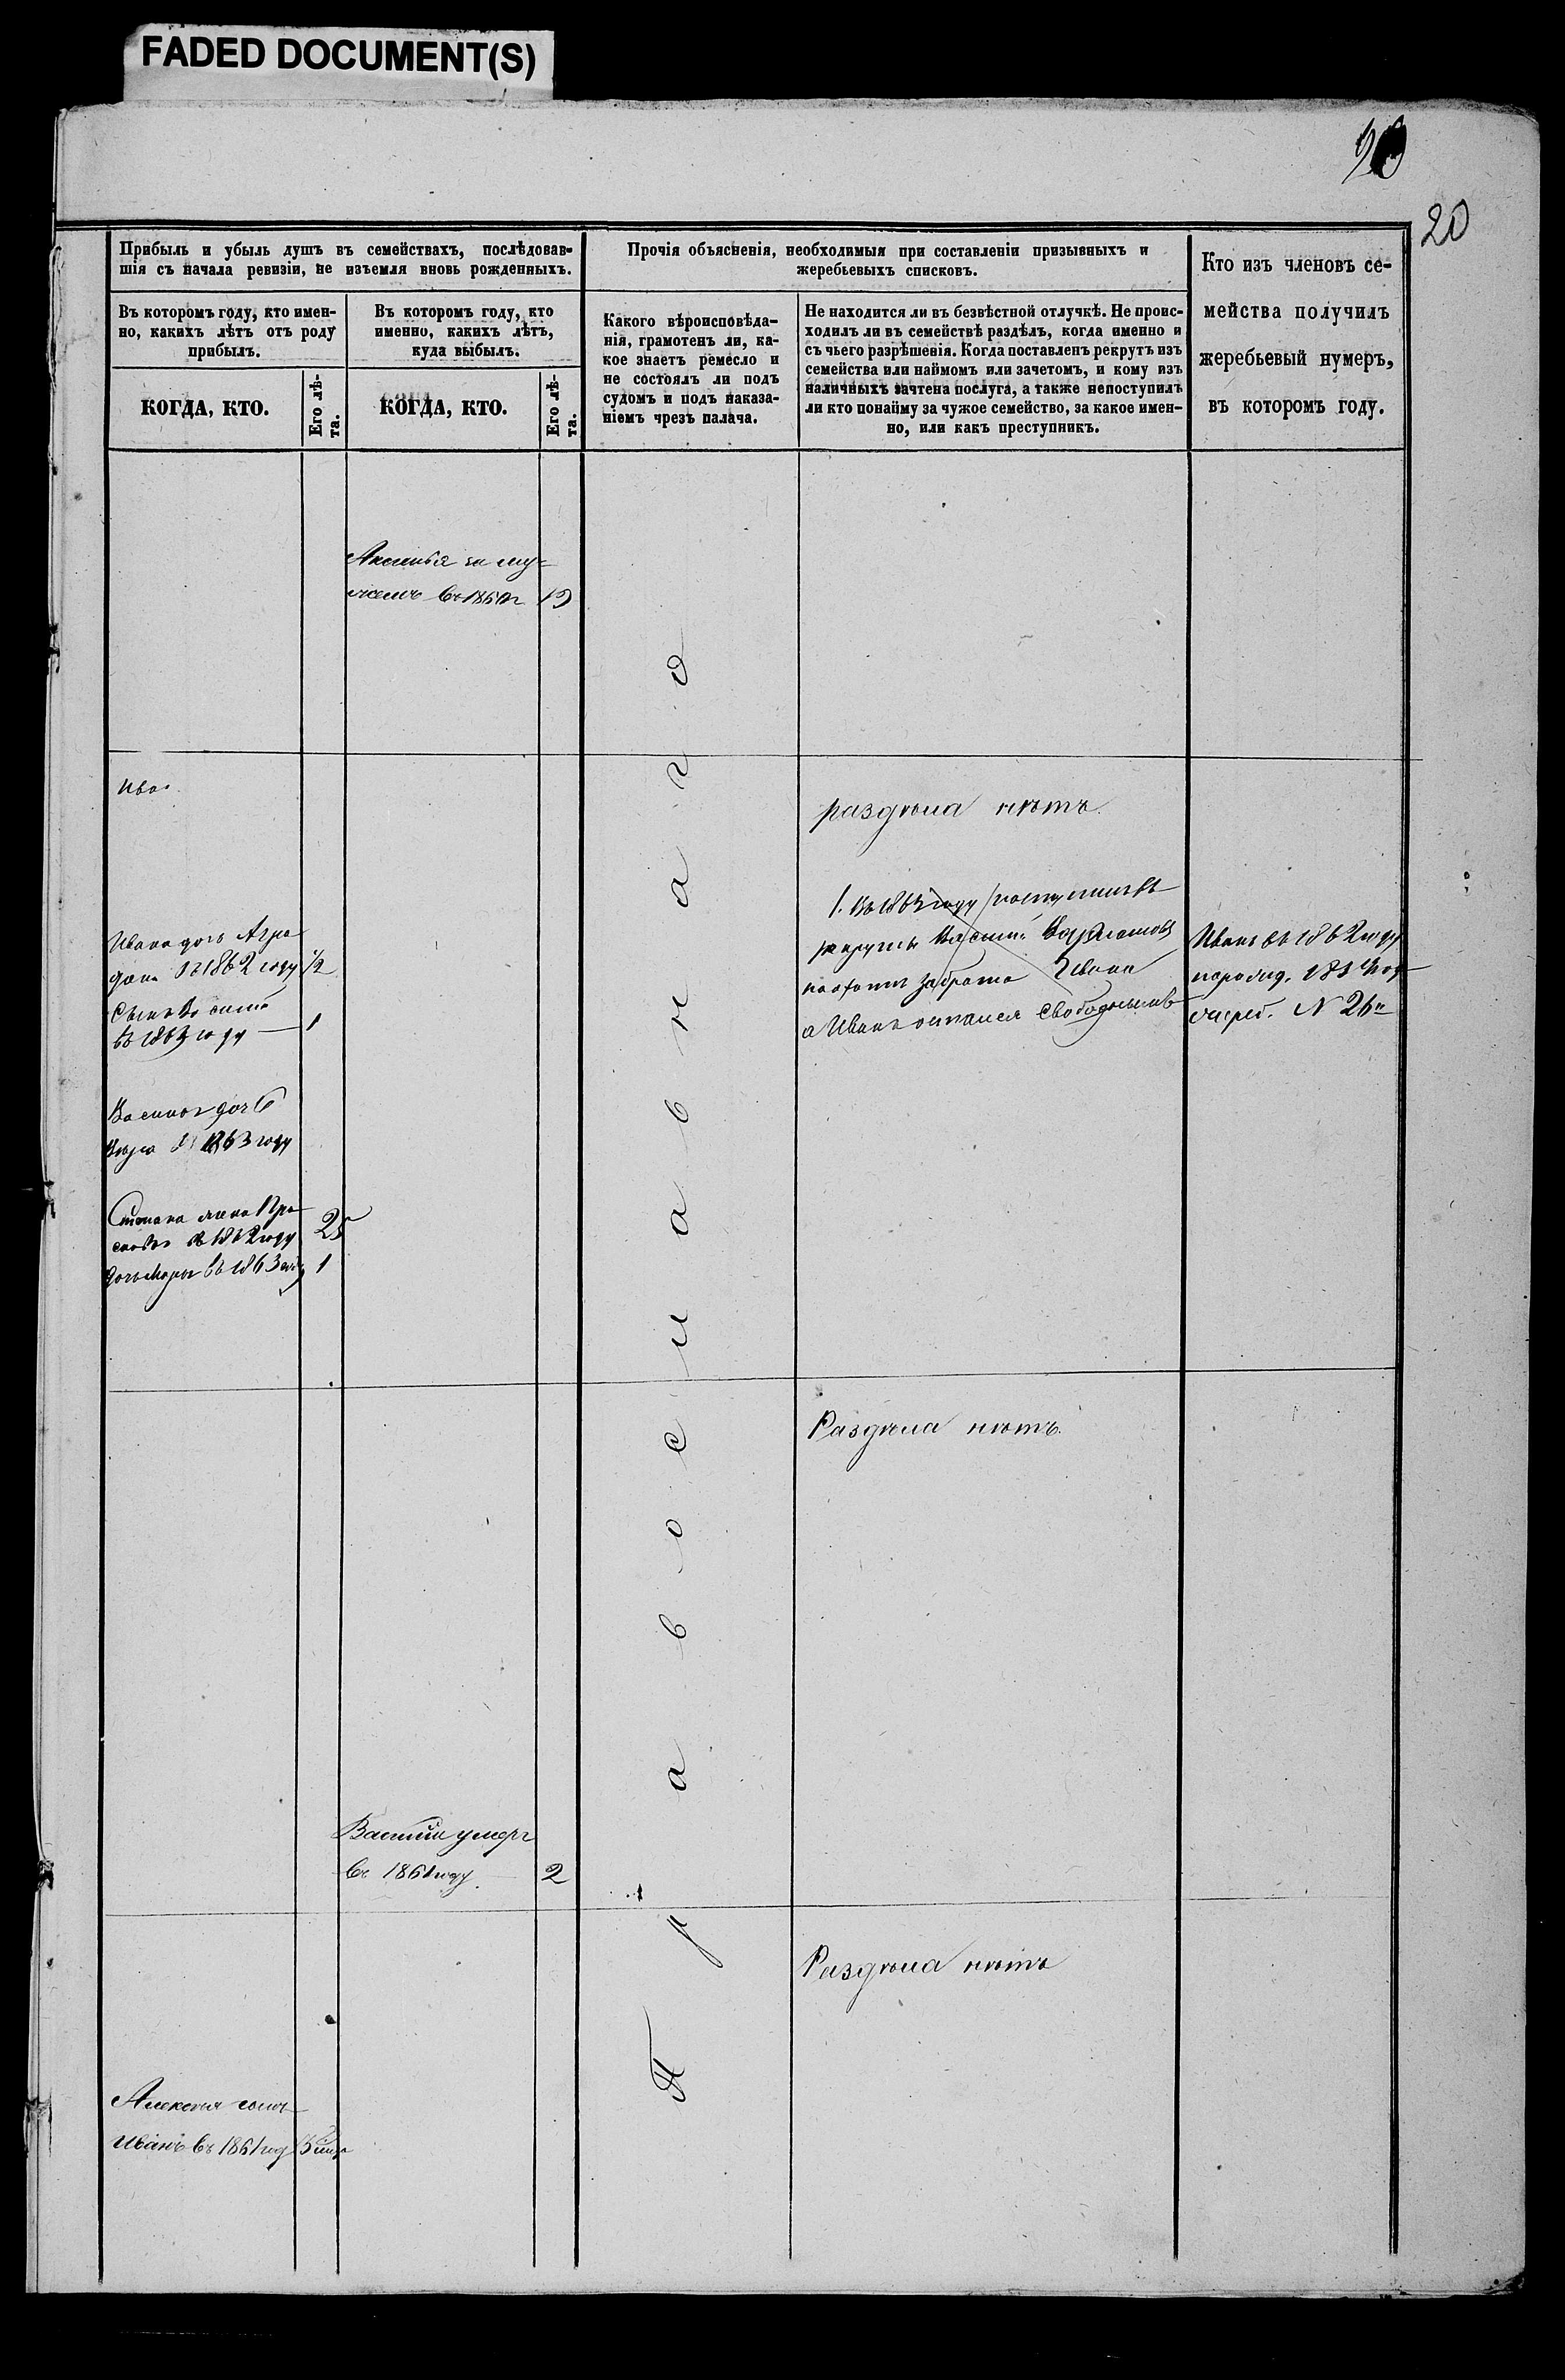 FADED DOCUMENT(S)
20
Прибыль и убыль душъ въ семействахъ, послѣдовав-
шія съ начала ревизіи, не изъемля вновь рожденныхъ.
Въ которомъ году, кто имен-
но, какихъ лѣтъ отъ роду
прибылъ.
КОГДА, КТО.
Его лѣ-
та.
Въ которомъ году, кто
именно, какихъ лѣтъ,
куда выбылъ.
КОГДА, КТО.
Его лѣ-
та.
Прочія объясненія, необходимыя при составленіи призывныхъ и
жеребьевыхъ списковъ.
Какого вѣроисповѣда-
нія, грамотенъ ли, ка-
кое знаетъ ремесло и
не состоялъ ли подъ
судомъ и подъ наказа-
ніемъ чрезъ палача.
Не находится ли въ безвѣстной отлучкѣ. Не проис-
ходилъ ли въ семействѣ раздѣлъ, когда именно и
съ чьего разрѣшенія. Когда поставленъ рекрутъ изъ
семейства или наймомъ или зачетомъ, и кому изъ
наличныхъ зачтена послуга, а также непоступилъ
ли кто понайму за чужое семейство, за какое имен-
но, или какъ преступникъ.
Кто изъ членовъ се-
мейства получилъ
жеребьевый нумеръ,
въ которомъ году.
Аксинья за му-
жемъ въ 19
Православнаго
раздѣла нѣтъ.
Ивана дочь Агра
въ 1862 году 1/2
Сынъ
въ 1863 году 1
дочь
1863 году
Степана жена Пра
1862 году 25
дочь въ 1863 1
1. Въ 1863 году поступилъ въ
рекруты Василій
забрата Ивана
а Иванъ остался свободнымъ
Иванъ въ 1862 году
N 26
Раздѣла нѣтъ.
Василій умеръ
въ 1861 году 2
Раздѣла нѣтъ
Алексѣя сынъ
Иванъ въ 1861 год